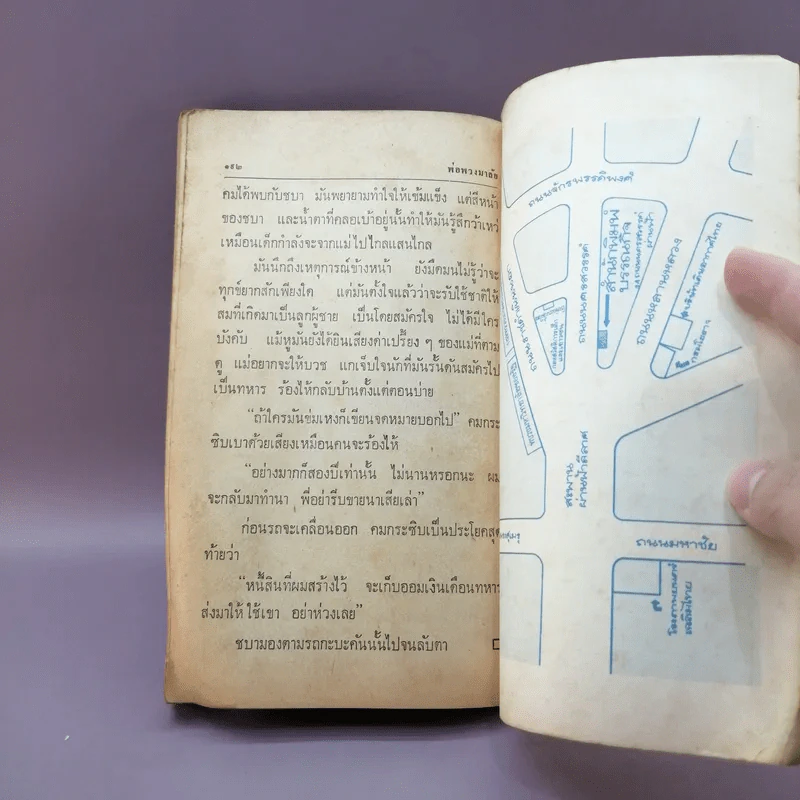 ๑๙๒
พ่อพวงมาลัย
คมได้พบกับชบา มันพยายามทำใจให้เข้มแข็ง แต่สีหน้า
ของชบา และน้ำตาที่คลอเบ้าอยู่นั้นทำให้มันรู้สึกว้าเหว่
เหมือนเด็กกำลังจะจากแม่ไปไกลแสนไกล
มันนึกถึงเหตุการณ์ข้างหน้า ยังมืดมนไม่รู้ว่าจะ
ทุกข์ยากสักเพียงใด แต่มันตั้งใจแล้วว่าจะรับใช้ชาติให้
สมที่เกิดมาเป็นลูกผู้ชาย เป็นโดยสมัครใจ ไม่ได้มีใคร
บังคับ แม้หูมันยังได้ยินเสียงด่าเปรี้ยง ๆ ของแม่ที่ตาม
ดู แม่อยากจะให้บวช แกเจ็บใจนักที่มันรั้นดันสมัครไป
เป็นทหาร ร้องไห้กลับบ้านตั้งแต่ตอนบ่าย
“ถ้าใครมันข่มเหงก็เขียนจดหมายบอกไป” คมกระ
ซิบเบาด้วยเสียงเหมือนคนจะร้องไห้
“อย่างมากก็สองปีเท่านั้น ไม่นานหรอกนะ ผม
จะกลับมาทำนา พี่อย่ารีบขายนาเสียเล่า”
ก่อนรถจะเคลื่อนออก คมกระซิบเป็นประโยคสุด
ท้ายว่า
“หนี้สินที่ผมสร้างไว้ จะเก็บออมเงินเดือนทหาร
ส่งมาให้ใช้เขา อย่าห่วงเลย”
ชบามองตามรถกะบะคันนั้นไปจนลับตา
ถนนจักรพรรดิพงศ์
สำนักพิมพ์
บรรณกิจ
ถนนนครสวรรค์
ถนนหลานหลวง
สะพาน
ผ่านฟ้าลีลาศ
ถนนมหาชัย
โรงภาพยนตร์
เฉลิมไทย